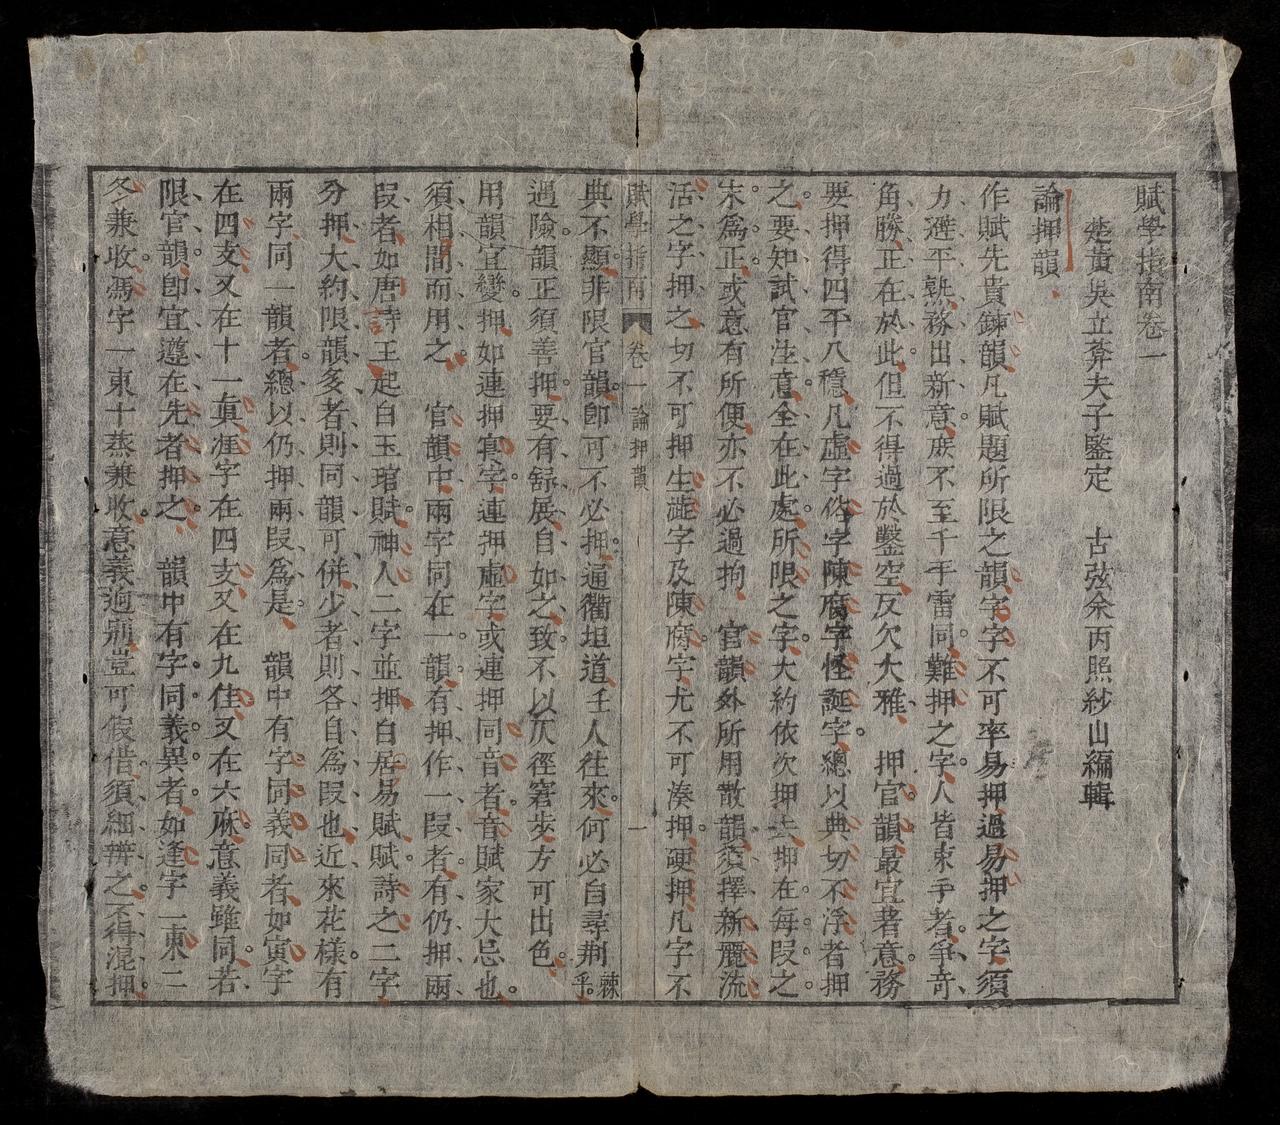 賦學指南卷一
楚黃吳立莽夫子鑒定　古弦余丙照紗山編輯
論押韻
作賦先貴鍊韻凡賦題所限之韻字字不可率易押過易押之字須
力避平熟務出新意庶不至千手雷同難押之字人皆束手者爭奇
角勝正在於此但不得過於鑿空反欠大雅　押官韻最宜著意務
要押得四平八穩凡虛字俗字陳腐字怪誕字總以典切不浮者押
之要知試官注意全在此處所限之字大約依次押去押在每段之
末為正或意有所便亦不必過拘　官韻外所用散韻須擇新麗流
活之字押之切不可押生澁字及陳腐字尤不可湊押硬押凡字不
賦學指南　卷一　論押韻　一
典不顯非限官韻即可不必押通衢坦道壬人往來何必自尋荆棘乎
遇險韻正須善押要有舒展自如之致不以仄徑窘步方可出色
用韻宜變押如連押實字連押虛字或連押同音者音賦家大忌也
須相間而用之　官韻中兩字同在一韻有押作一段者有仍押兩
段者如唐詩王起白玉琯賦神人二字並押白居易賦賦詩之二字
分押大約限韻多者則同韻可併少者則各自為段也近來花樣有
兩字同一韻者總以仍押兩段為是　韻中有字同義同者如寅字
在四支又在十一真涯字在四支又在九佳又在六麻意義雖同若
限官韻即宜遵在先者押之　韻中有字同義異者如逢字一東二
冬兼收馮字一東十蒸兼收意義迥別豈可假借須細辨之不得混押